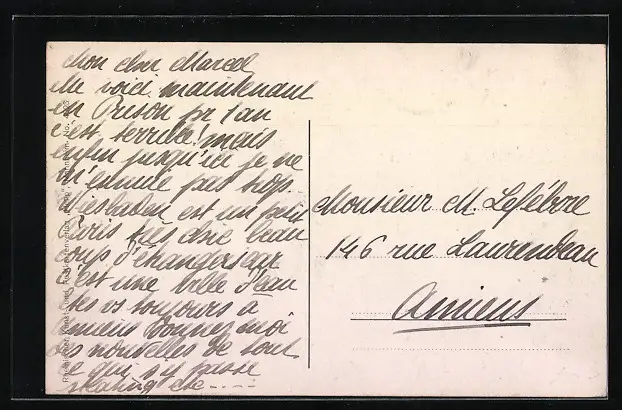 Mon cher Marcel
Me voici maintenant
en Prison pr 1 an
c'est terrible! mais
enfin jusqu'ici je ne
m'ennuie pas trop.
Wiesbaden est un petit
Paris très chic beau
coup d'étrangers car
c'est une ville d'eau
êtes vs toujours à
Amiens donnez moi
des nouvelles de tout
ce qui s'y passe
skating etc....
Monsieur M. Lefébvre
146 rue Laurendeau
Amiens